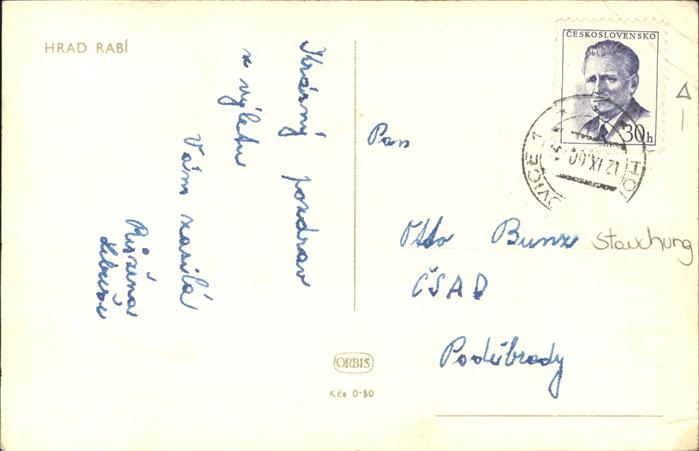 HRAD RABÍ
Krásný pozdrav
z výletu
Vám zasílá
Růžena
Libuše
ČESKOSLOVENSKO
30h
12.IX.60
Pan
Otto Bunze
Stauchung
ČSAD
Poděbrady
ORBIS
Kčs 0·50